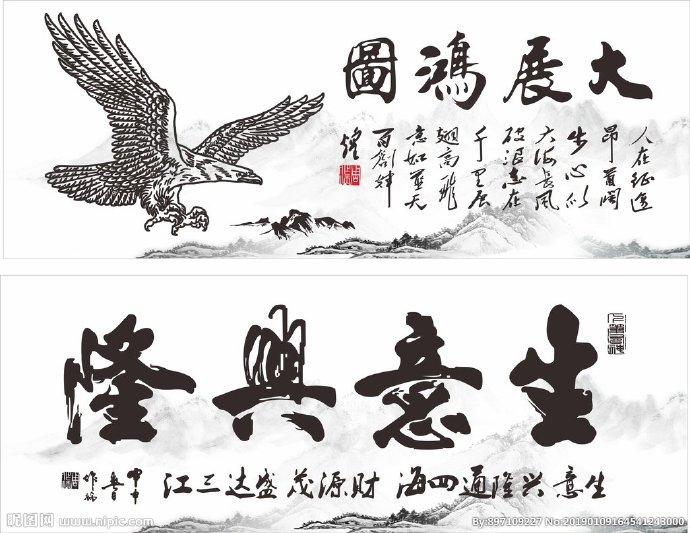 大展鴻圖
人在征途
昂首阔
步心似
大海长风
破浪志在
千里展
翅高飞
意如天
再創辉
煌
生意興隆
生意兴隆通四海 财源茂盛达三江
甲申
昵图网 www.nipic.com
By:897109227 No:20190109164541243000